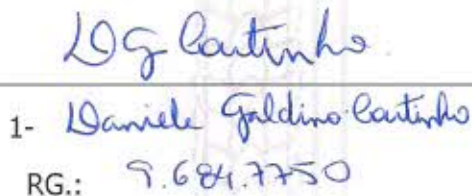 DG Coutinho
1- Daniele Galdino Coutinho
RG.: 9.684.7750